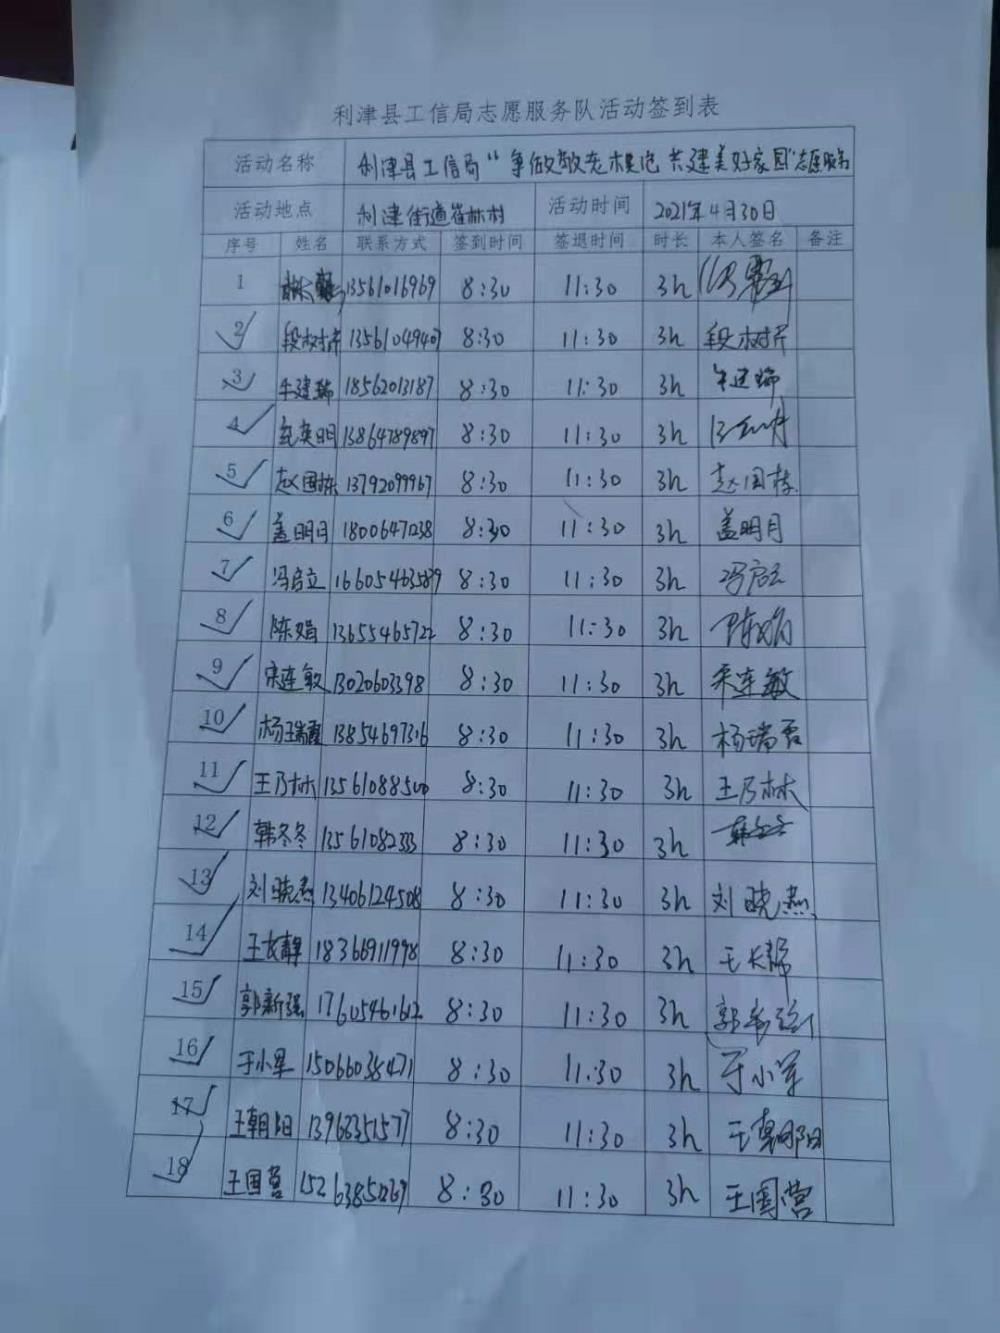 利津县工信局志愿服务队活动签到表
活动名称 利津县工信局“争做敬老模范 共建美好家园”志愿服务
活动地点 利津街道崔林村 活动时间 2021年4月30日
序号 姓名 联系方式 签到时间 签退时间 时长 本人签名 备注
1 13561016969 8:30 11:30 3h
2 段树芹 13561049407 8:30 11:30 3h 段树芹
3 牛建瑞 18562013187 8:30 11:30 3h 牛建瑞
4 13864789897 8:30 11:30 3h
5 赵国栋 13792099967 8:30 11:30 3h 赵国栋
6 盖明月 18006471238 8:30 11:30 3h 盖明月
7 冯启立 16605463589 8:30 11:30 3h 冯启立
8 陈娟 13655465722 8:30 11:30 3h 陈娟
9 宋连敏 13020603398 8:30 11:30 3h 宋连敏
10 杨瑞霞 13854697316 8:30 11:30 3h 杨瑞霞
11 王乃林 13561088500 8:30 11:30 3h 王乃林
12 韩冬冬 13561082333 8:30 11:30 3h 韩冬冬
13 刘晓燕 13406124508 8:30 11:30 3h 刘晓燕
14 王长静 18366911998 8:30 11:30 3h 王长静
15 郭新强 17605461612 8:30 11:30 3h 郭新强
16 于小军 15066038471 8:30 11:30 3h 于小军
17 王朝阳 8:30 11:30 3h 王朝阳
18 王国营 8:30 11:30 3h 王国营